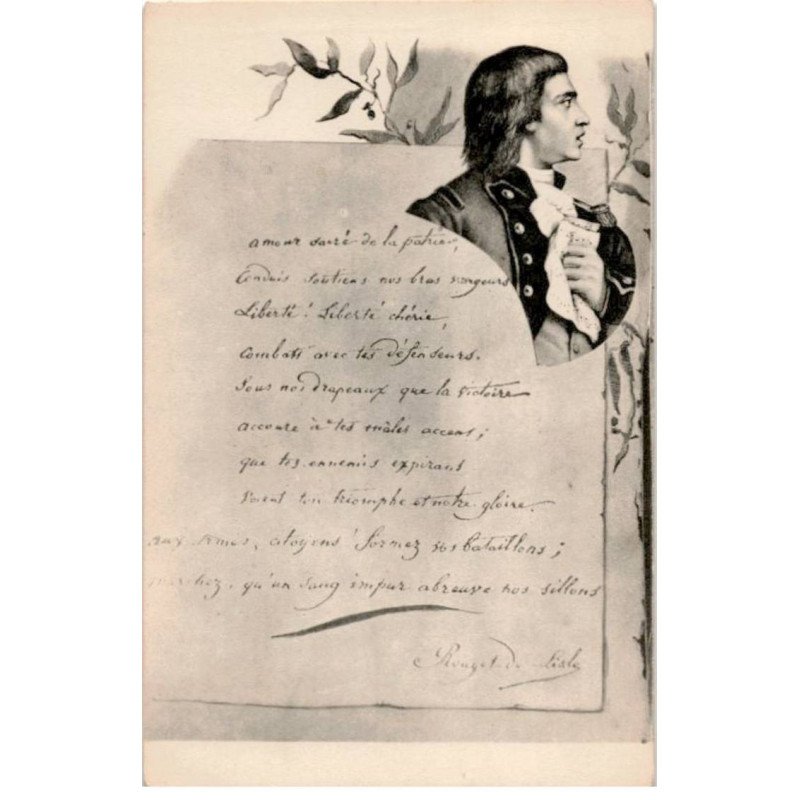 amour sacré de la patrie,
Conduis soutiens nos bras vengeurs
Liberté! Liberté chérie,
combats avec tes défenseurs.
Sous nos drapeaux que la victoire
accoure à tes mâles accens;
que tes ennemis expirans
voient ton triomphe et notre gloire.
aux armes, citoyens! formez vos bataillons;
marchez, qu'un sang impur abreuve nos sillons
Rouget de Lisle